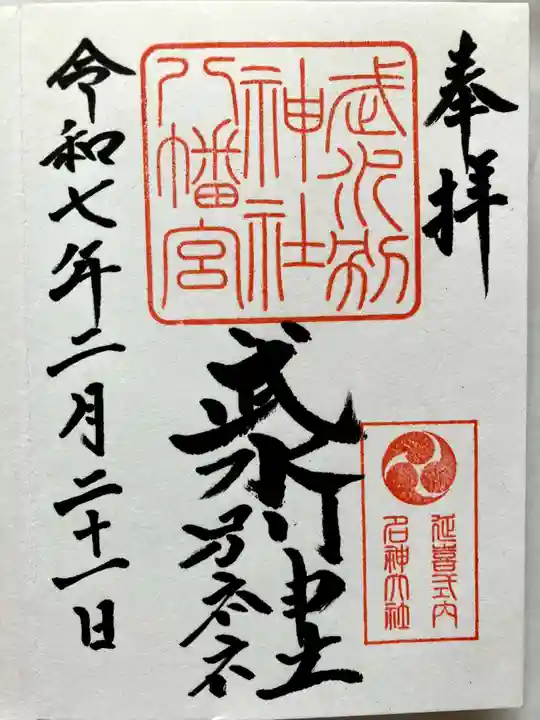 奉拝
武水別
神社
八幡宮
武水別神社
延喜式内
名神大社
令和七年二月二十一日